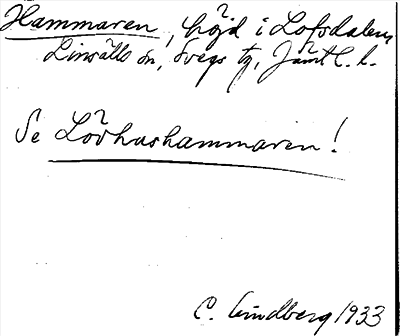 Hammaren, höjd i Lofsdalen,
Linsälls sn, Svegs tg, Jämtl. l.
Se Lövhushammaren!
C. Lindberg 1933